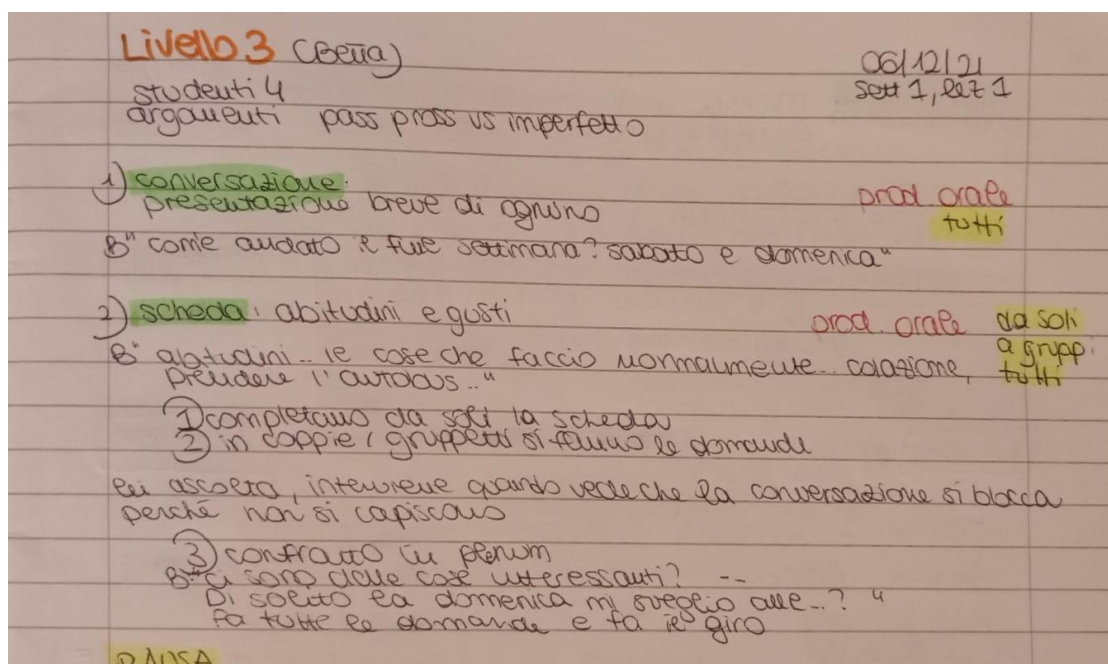 Livello 3 (Betta)
06/12/21
studenti 4
sett 1, lez 1
argomenti pass pross vs imperfetto
1) conversazione:
prod orale
presentazione breve di ognuno
tutti
B" come andato il fine settimana? sabato e domenica"
2) scheda: abitudini e gusti
prod. orale da soli
a gruppi
B" abitudini.. le cose che faccio normalmente.. colazione, tutti
prendere l'autobus.."
1) completano da soli la scheda
2) in coppie / gruppetti si fanno le domande
lei ascolta, interviene quando vede che la conversazione si blocca
perché non si capiscono
3) confronto in plenum
B" ci sono delle cose interessanti? --
Di solito la domenica mi sveglio alle..? "
fa tutte le domande e fa il giro
PAUSA